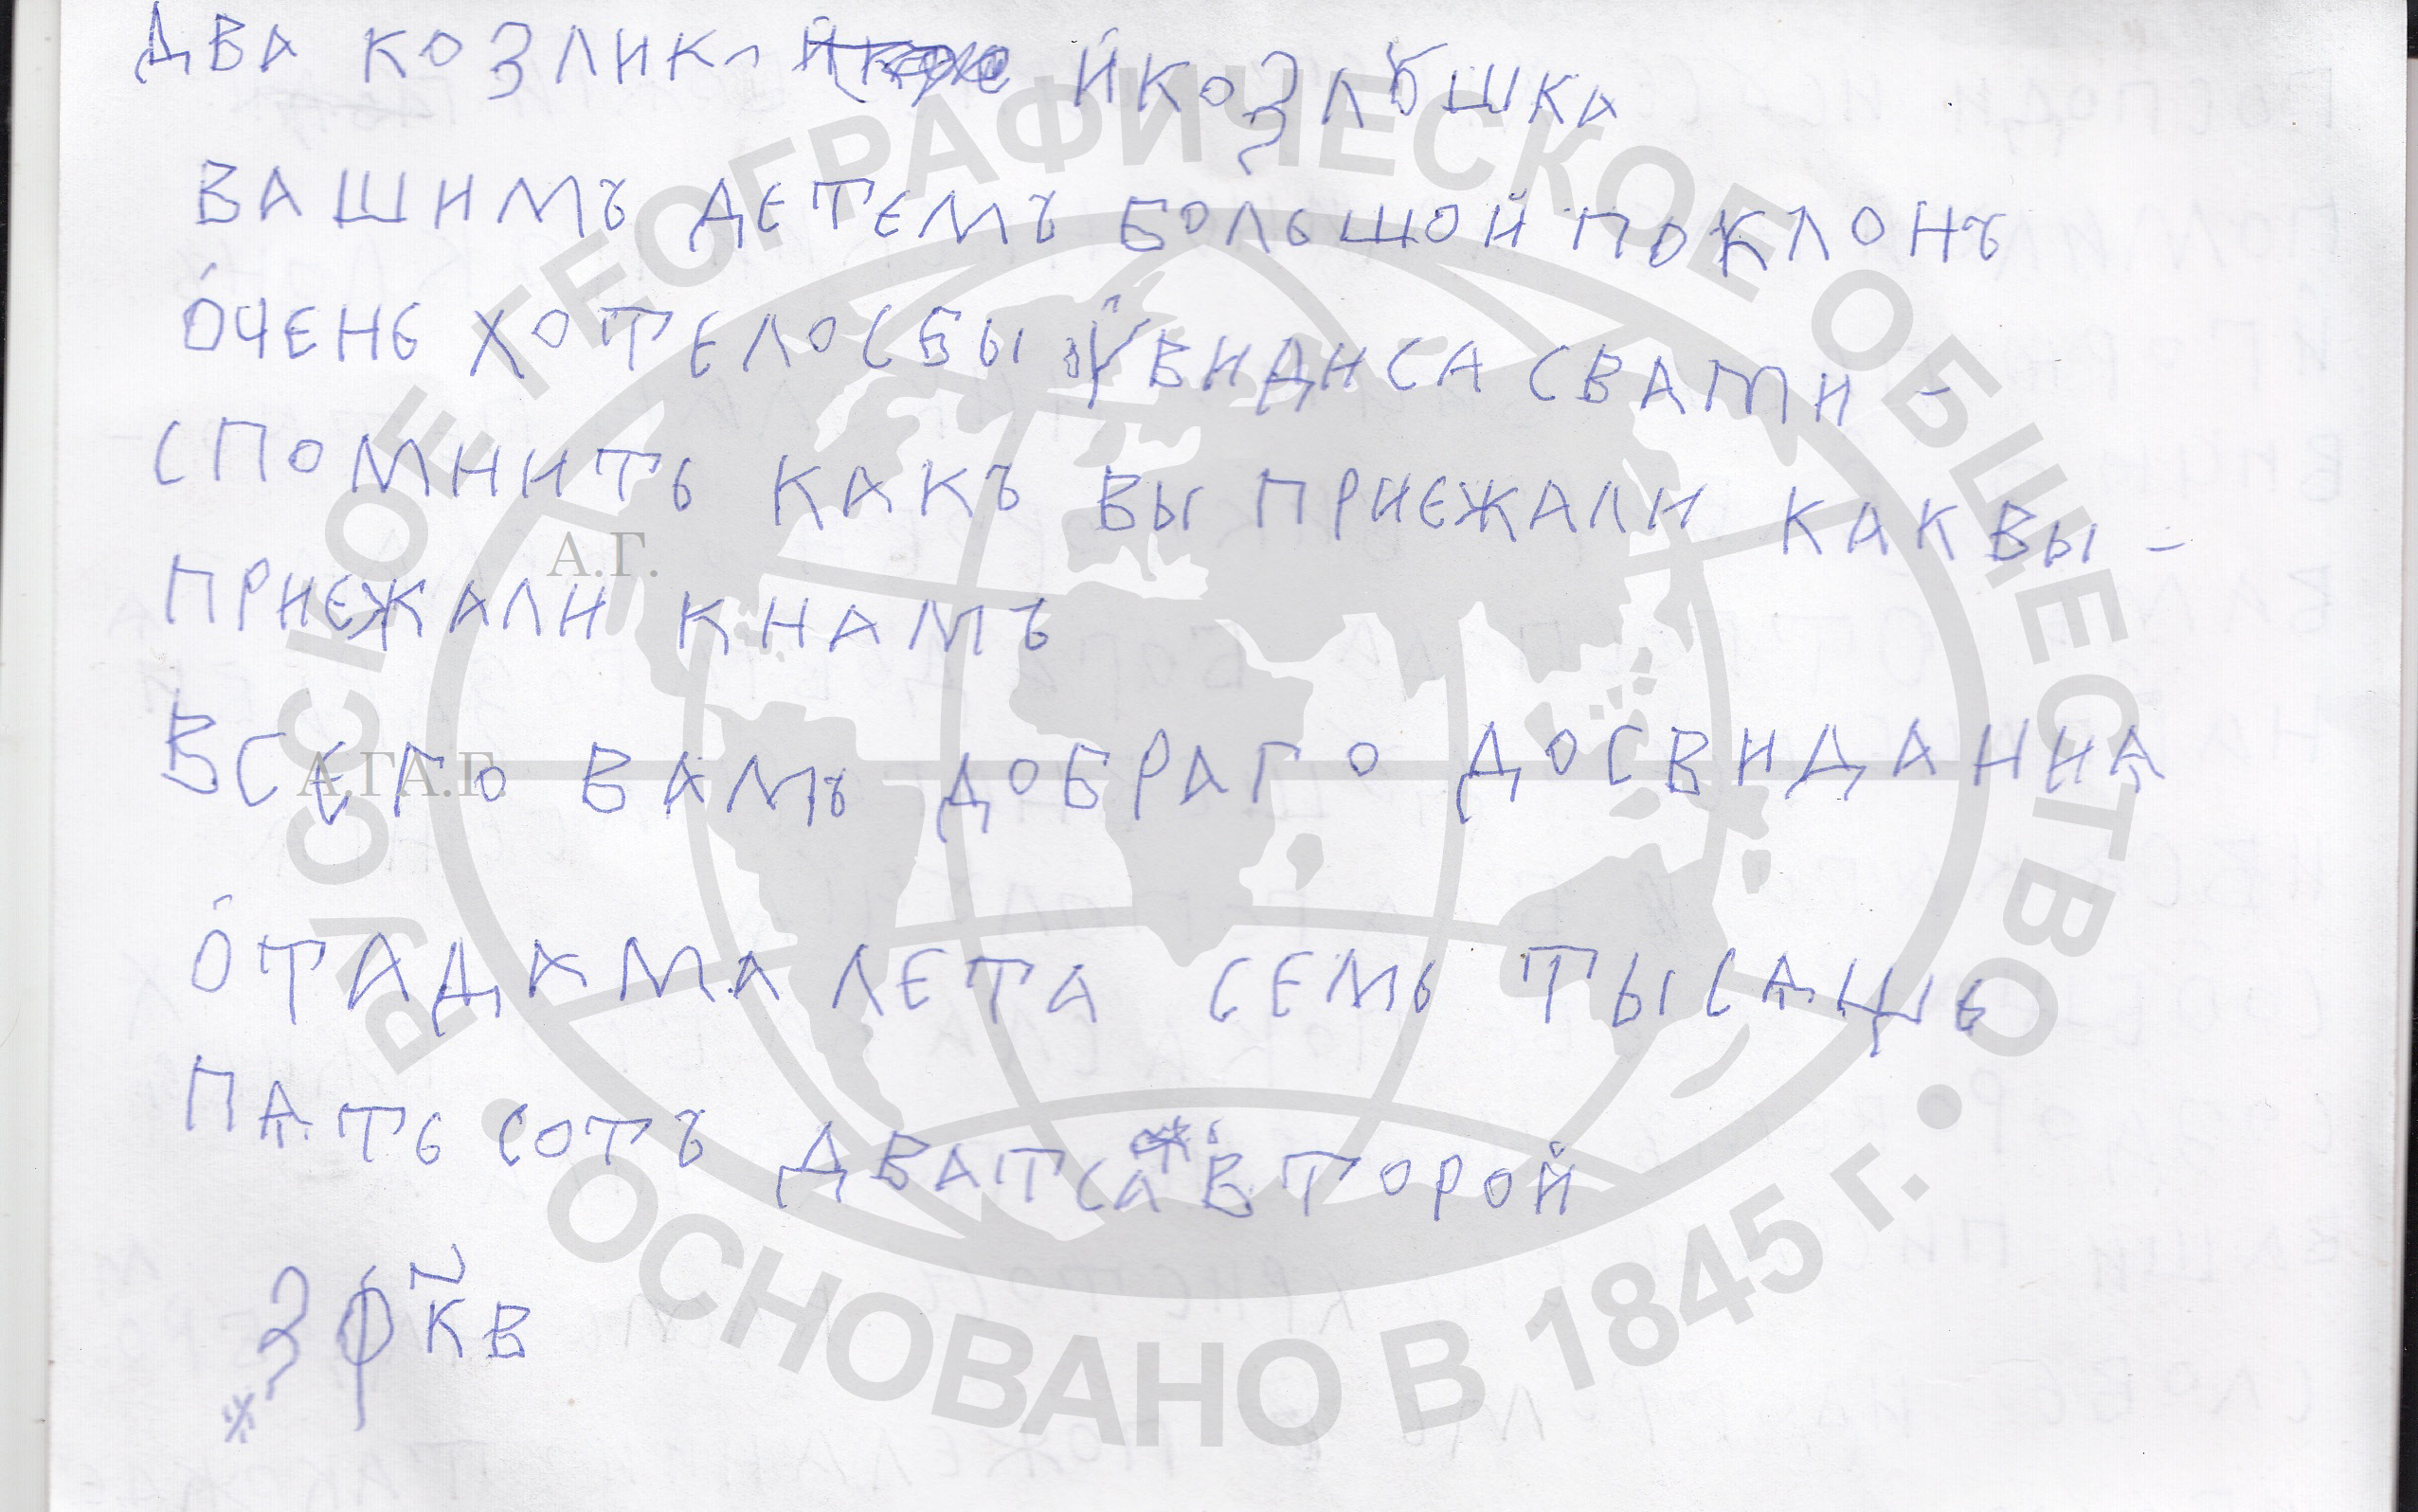 ДВА КОЗЛИКА ЙКОЗЛꙊШКА
ВАШИМЪ ДЕТЕМЪ БОЛЬШОЙ ПОКЛОНЪ
О́ЧЕНЬ ХОТЕЛОСБЫ ОУ҆ВИДИСА СВАМИ -
СПОМНИТЬ КАКЪ ВЫ ПРИЕЖАЛИ КАК ВЫ -
ПРИЕЖАЛИ КНАМЪ
ВСЕГО ВАМЪ ДОБРАГО ДОСВИДАНИѦ
О́ТАДАМА ЛЕТА СЕМЬ ТЫСѦЩЬ
ПѦТЬ СОТЪ ДВАТСА ВТОРОЙ
҂ЗФК҃В
РУССКОЕ ГЕОГРАФИЧЕСКОЕ ОБЩЕСТВО
• ОСНОВАНО В 1845 г. •
А.Г.
А.Г.А.Г.